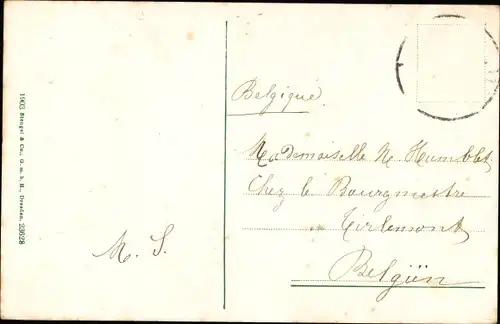 1903 Stengel & Co., G. m. b. H., Dresden. 23628
Belgique
Mademoiselle N. Humblet
Chez le Bourgmestre
Tirlemont
Belgiën
M. S.